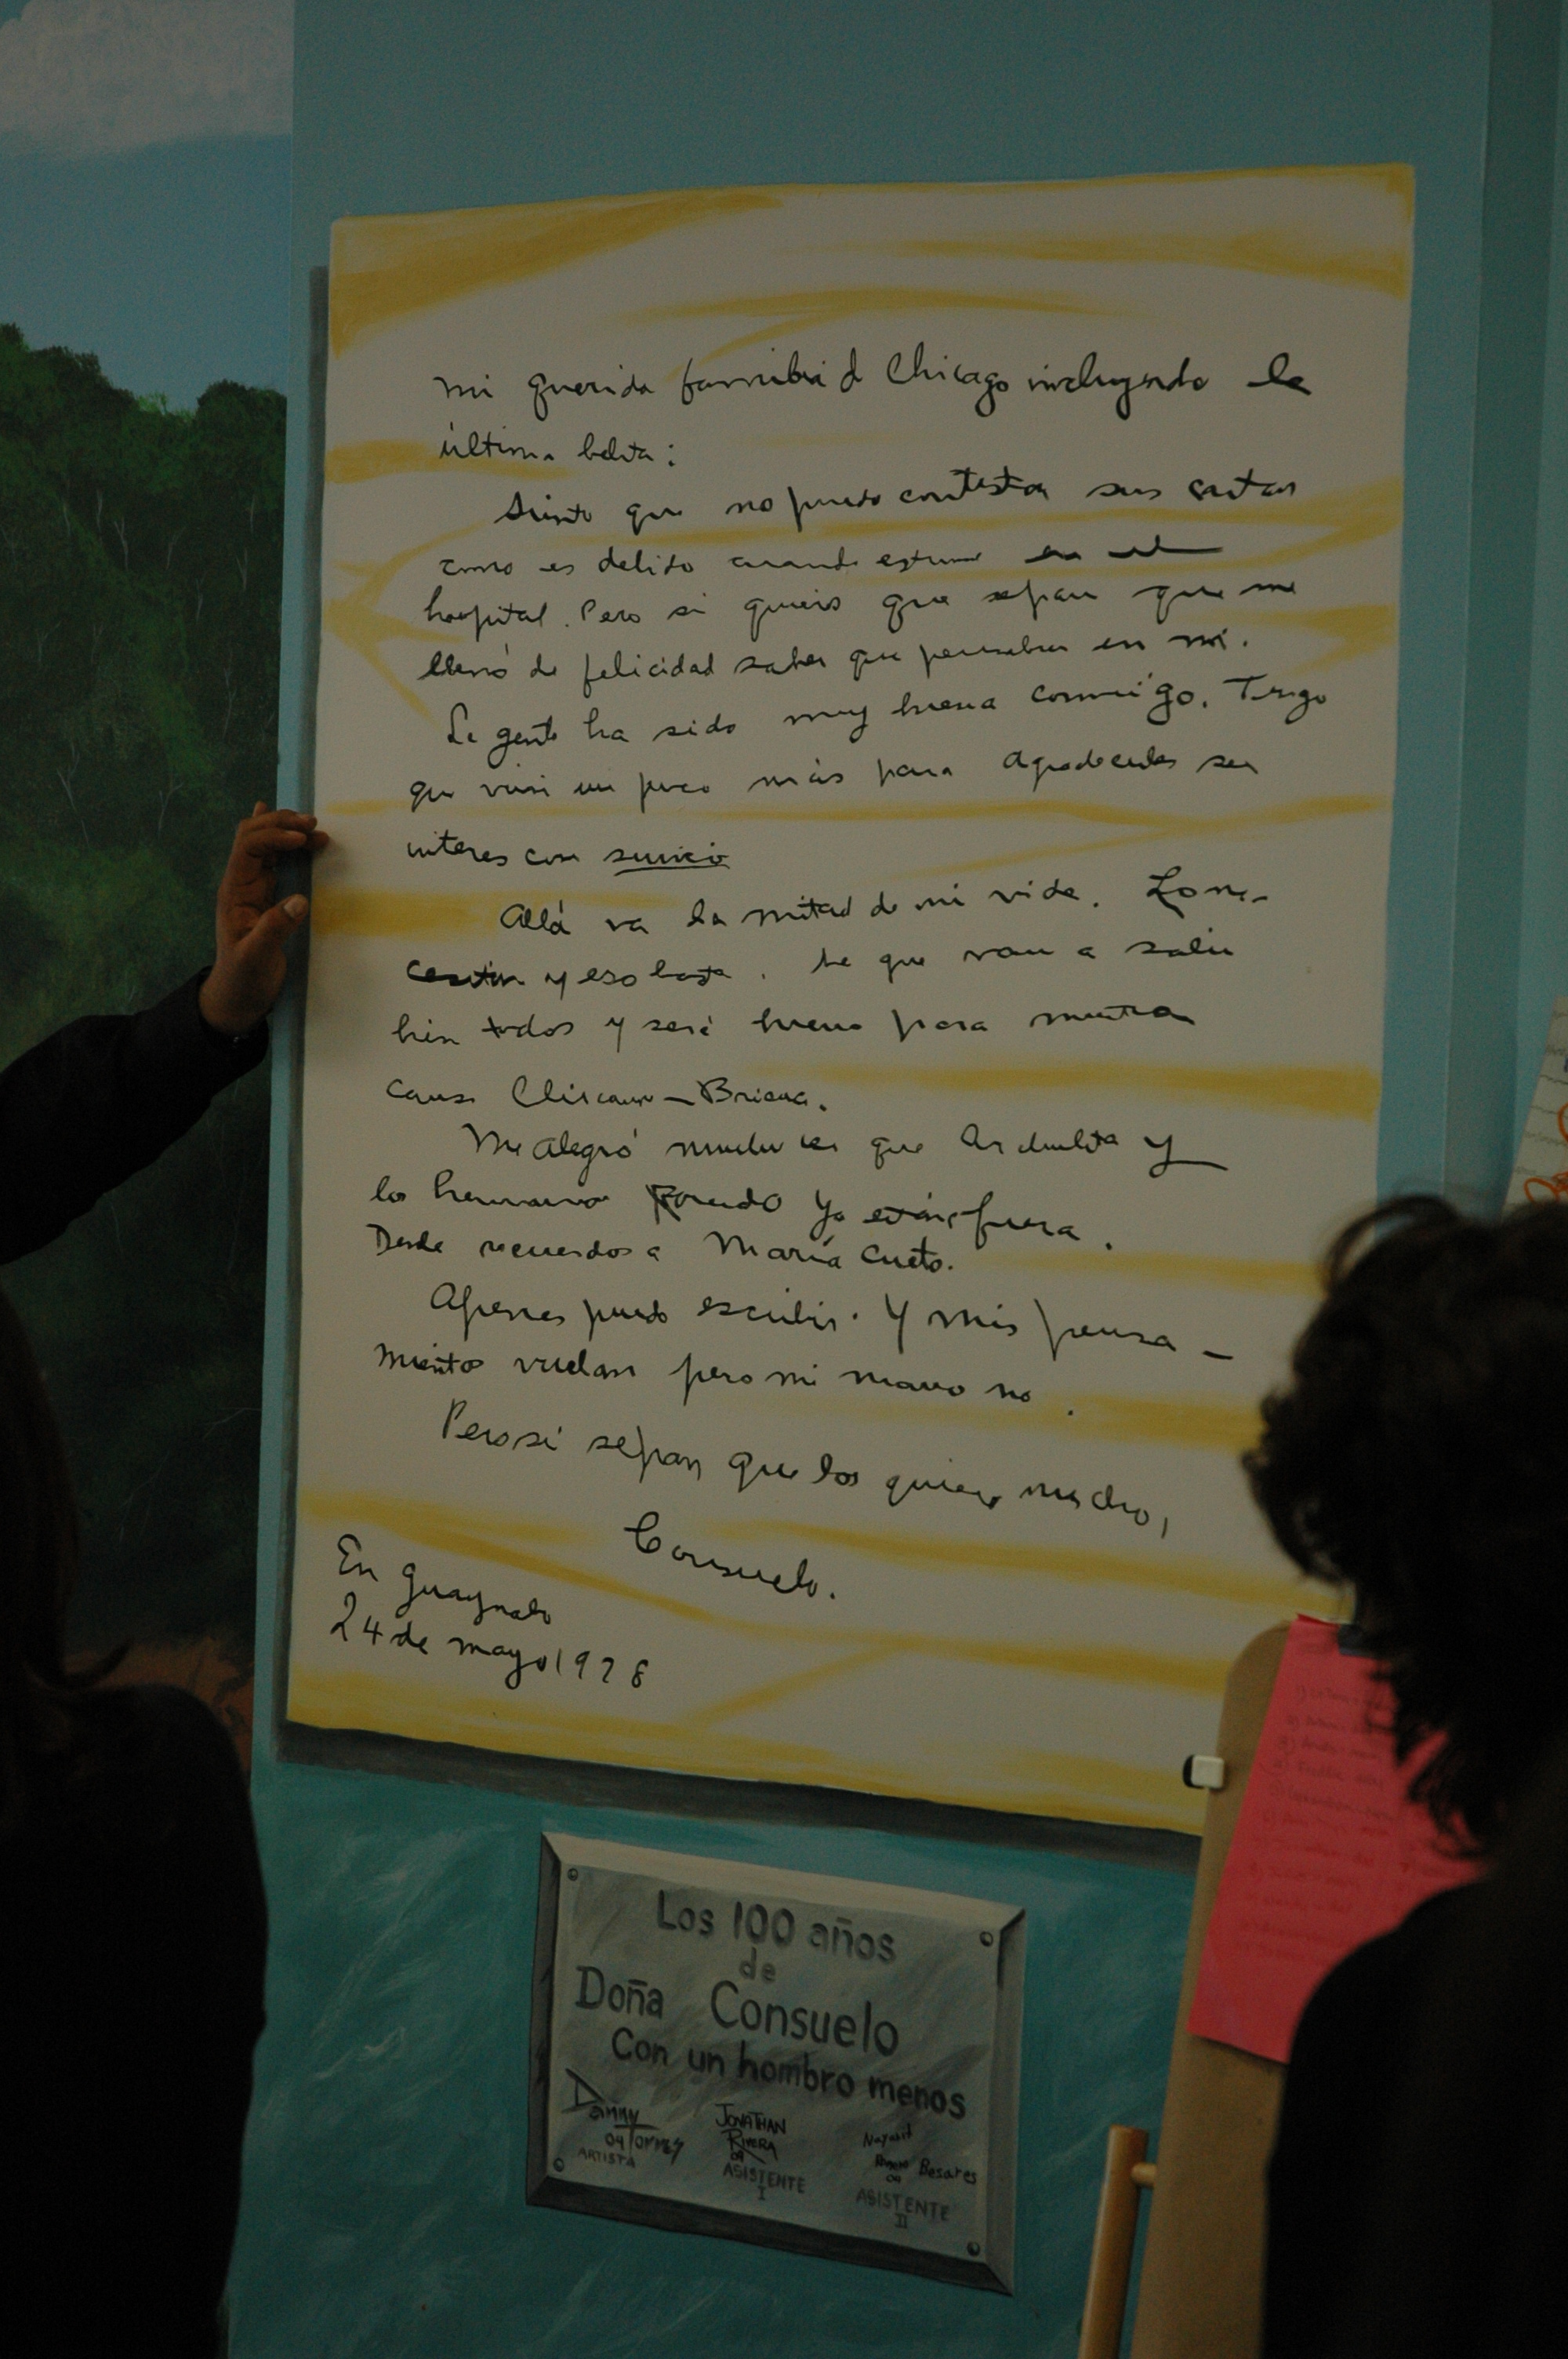 Mi querida familia d Chicago incluyendo la
última
Siento que no puedo contestar sus cartas
como es debido cuando estuve en el
hospital. Pero si quiero que sepan que me
llenó de felicidad saber que pensaban en mí.
La gente ha sido muy buena conmigo. Tengo
que vivir un poco más para agradecerles su
interes con servicio
Allá va la mitad de mi vida.
y eso basta. Sé que van a salir
bien todos y será bueno para nuestra
causa
Me alegró mucho que y
los hermanos ya están fuera.
recuerdos a María Cueto.
Apenas puedo escribir. Y mis pensa-
mientos vuelan pero mi mano no.
Pero sí sepan que los quiero mucho,
Consuelo.
En Guaynabo
24 de mayo 1978
Los 100 años
de
Doña Consuelo
Con un hombro menos
Danny
04 Torres
ARTISTA
JONATHAN
RIVERA
ASISTENTE
I
Besares
ASISTENTE
II